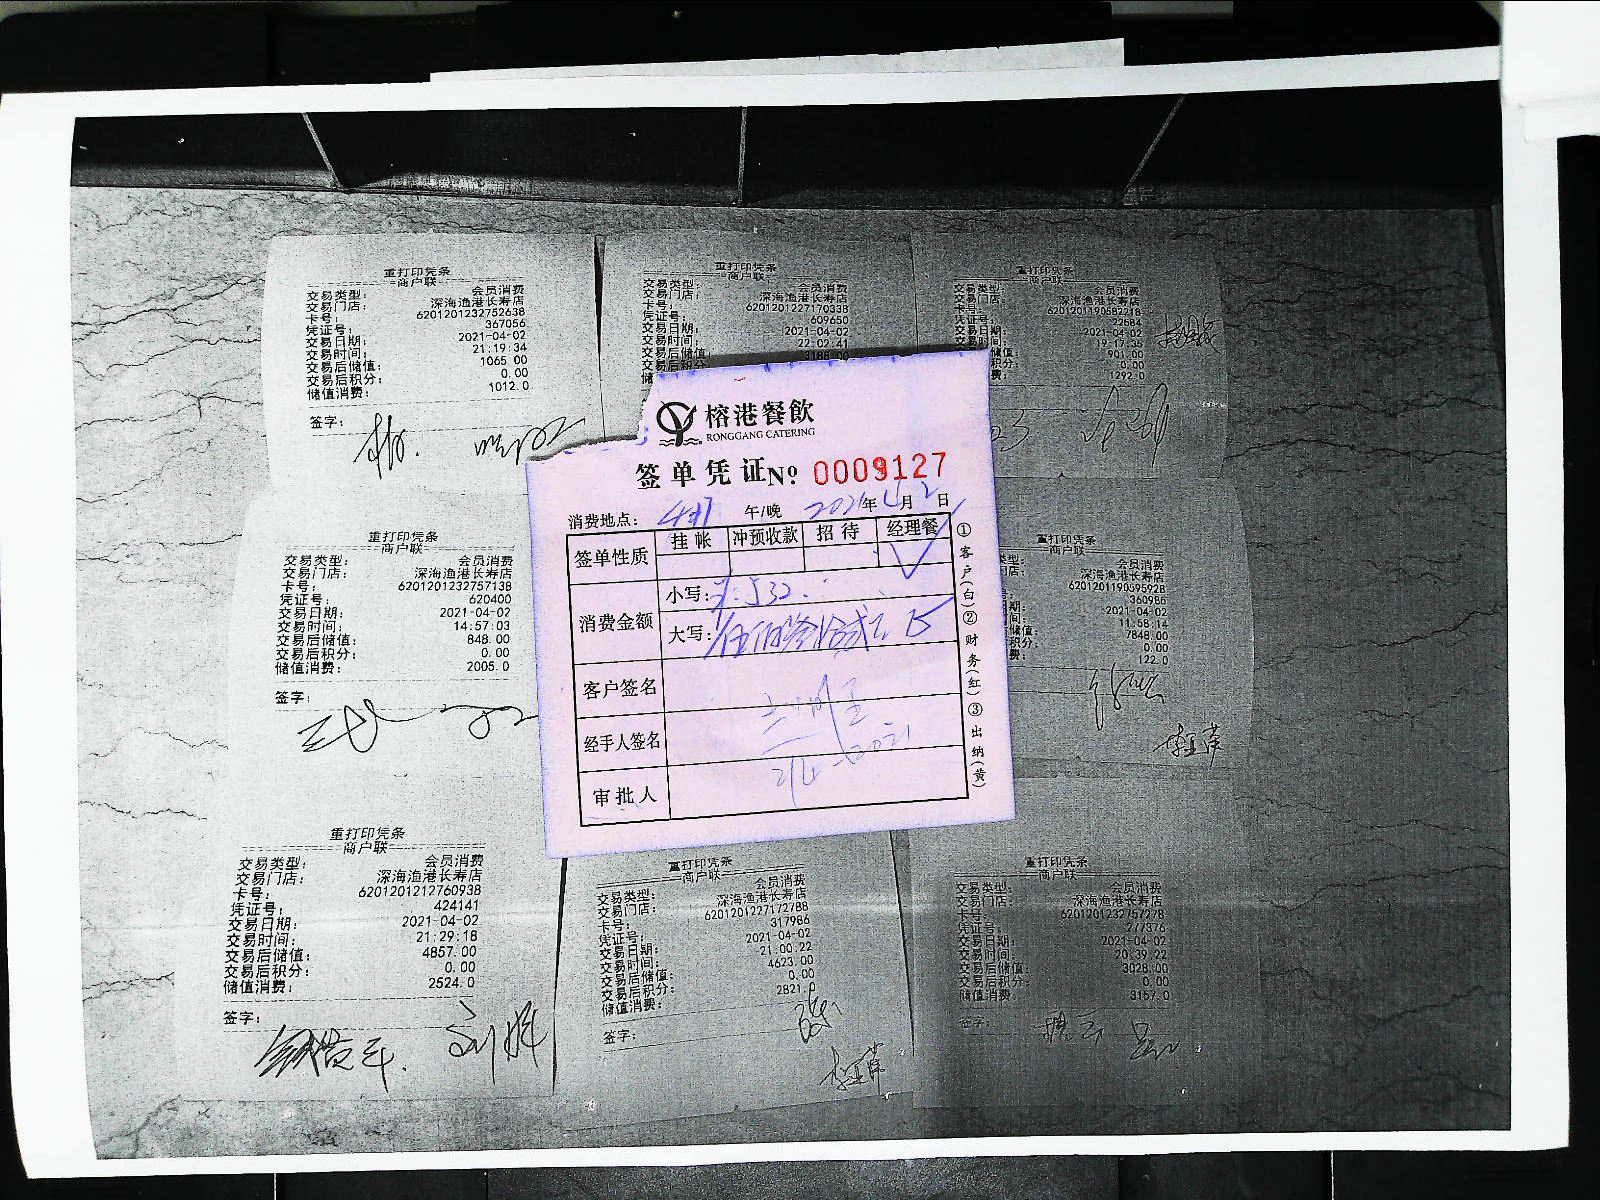 重打印凭条
商户联
交易类型: 会员消费
交易门店: 深海渔港长寿店
卡号: 6201201232752638
凭证号: 367056
交易日期: 2021-04-02
交易时间: 21:19:34
交易后储值: 1065.00
交易后积分: 0.00
储值消费: 1012.0
签字:
重打印凭条
商户联
交易类型: 会员消费
交易门店: 深海渔港长寿店
卡号: 6201201227170338
凭证号: 609650
交易日期: 2021-04-02
交易时间: 22:02:41
交易后储值 3188.00
交易后积
重打印凭条
商户联
交易类型: 会员消费
交易门店: 深海渔港长寿店
卡号: 6201201190582218
凭证号: 22584
交易日期: 2021-04-02
19:17:35
储值: 901.00
积分: 0.00
费: 1292.0
榕港餐飲
RONGGANG CATERING
签单凭证No. 0009127
消费地点: 午/晚 2021年4月2日
签单性质 挂帐 冲预收款 招待 经理餐
消费金额 小写: 532.
大写: 伍佰叁拾贰元
客户签名
经手人签名
审批人
①客户(白)②财务(红)③出纳(黄)
重打印凭条
商户联
交易类型: 会员消费
交易门店: 深海渔港长寿店
卡号: 6201201232757138
凭证号: 620400
交易日期: 2021-04-02
交易时间: 14:57:03
交易后储值: 848.00
交易后积分: 0.00
储值消费: 2005.0
签字:
重打印凭条
商户联
类型: 会员消费
门店: 深海渔港长寿店
6201201190595928
360986
日期: 2021-04-02
11:58:14
储值: 7848.00
积分: 0.00
费: 122.0
重打印凭条
商户联
交易类型: 会员消费
交易门店: 深海渔港长寿店
卡号: 6201201212760938
凭证号: 424141
交易日期: 2021-04-02
交易时间: 21:29:18
交易后储值: 4857.00
交易后积分: 0.00
储值消费: 2524.0
签字:
重打印凭条
商户联
交易类型: 会员消费
交易门店: 深海渔港长寿店
卡号: 6201201227172788
凭证号: 317986
交易日期: 2021-04-02
交易时间: 21:00:22
交易后储值: 4623.00
交易后积分: 0.00
储值消费: 2821.0
签字:
重打印凭条
商户联
交易类型: 会员消费
交易门店: 深海渔港长寿店
卡号: 6201201232757278
凭证号: 277376
交易日期: 2021-04-02
交易时间: 20:39:22
交易后储值: 3028.00
交易后积分: 0.00
储值消费 3157.0
签字: